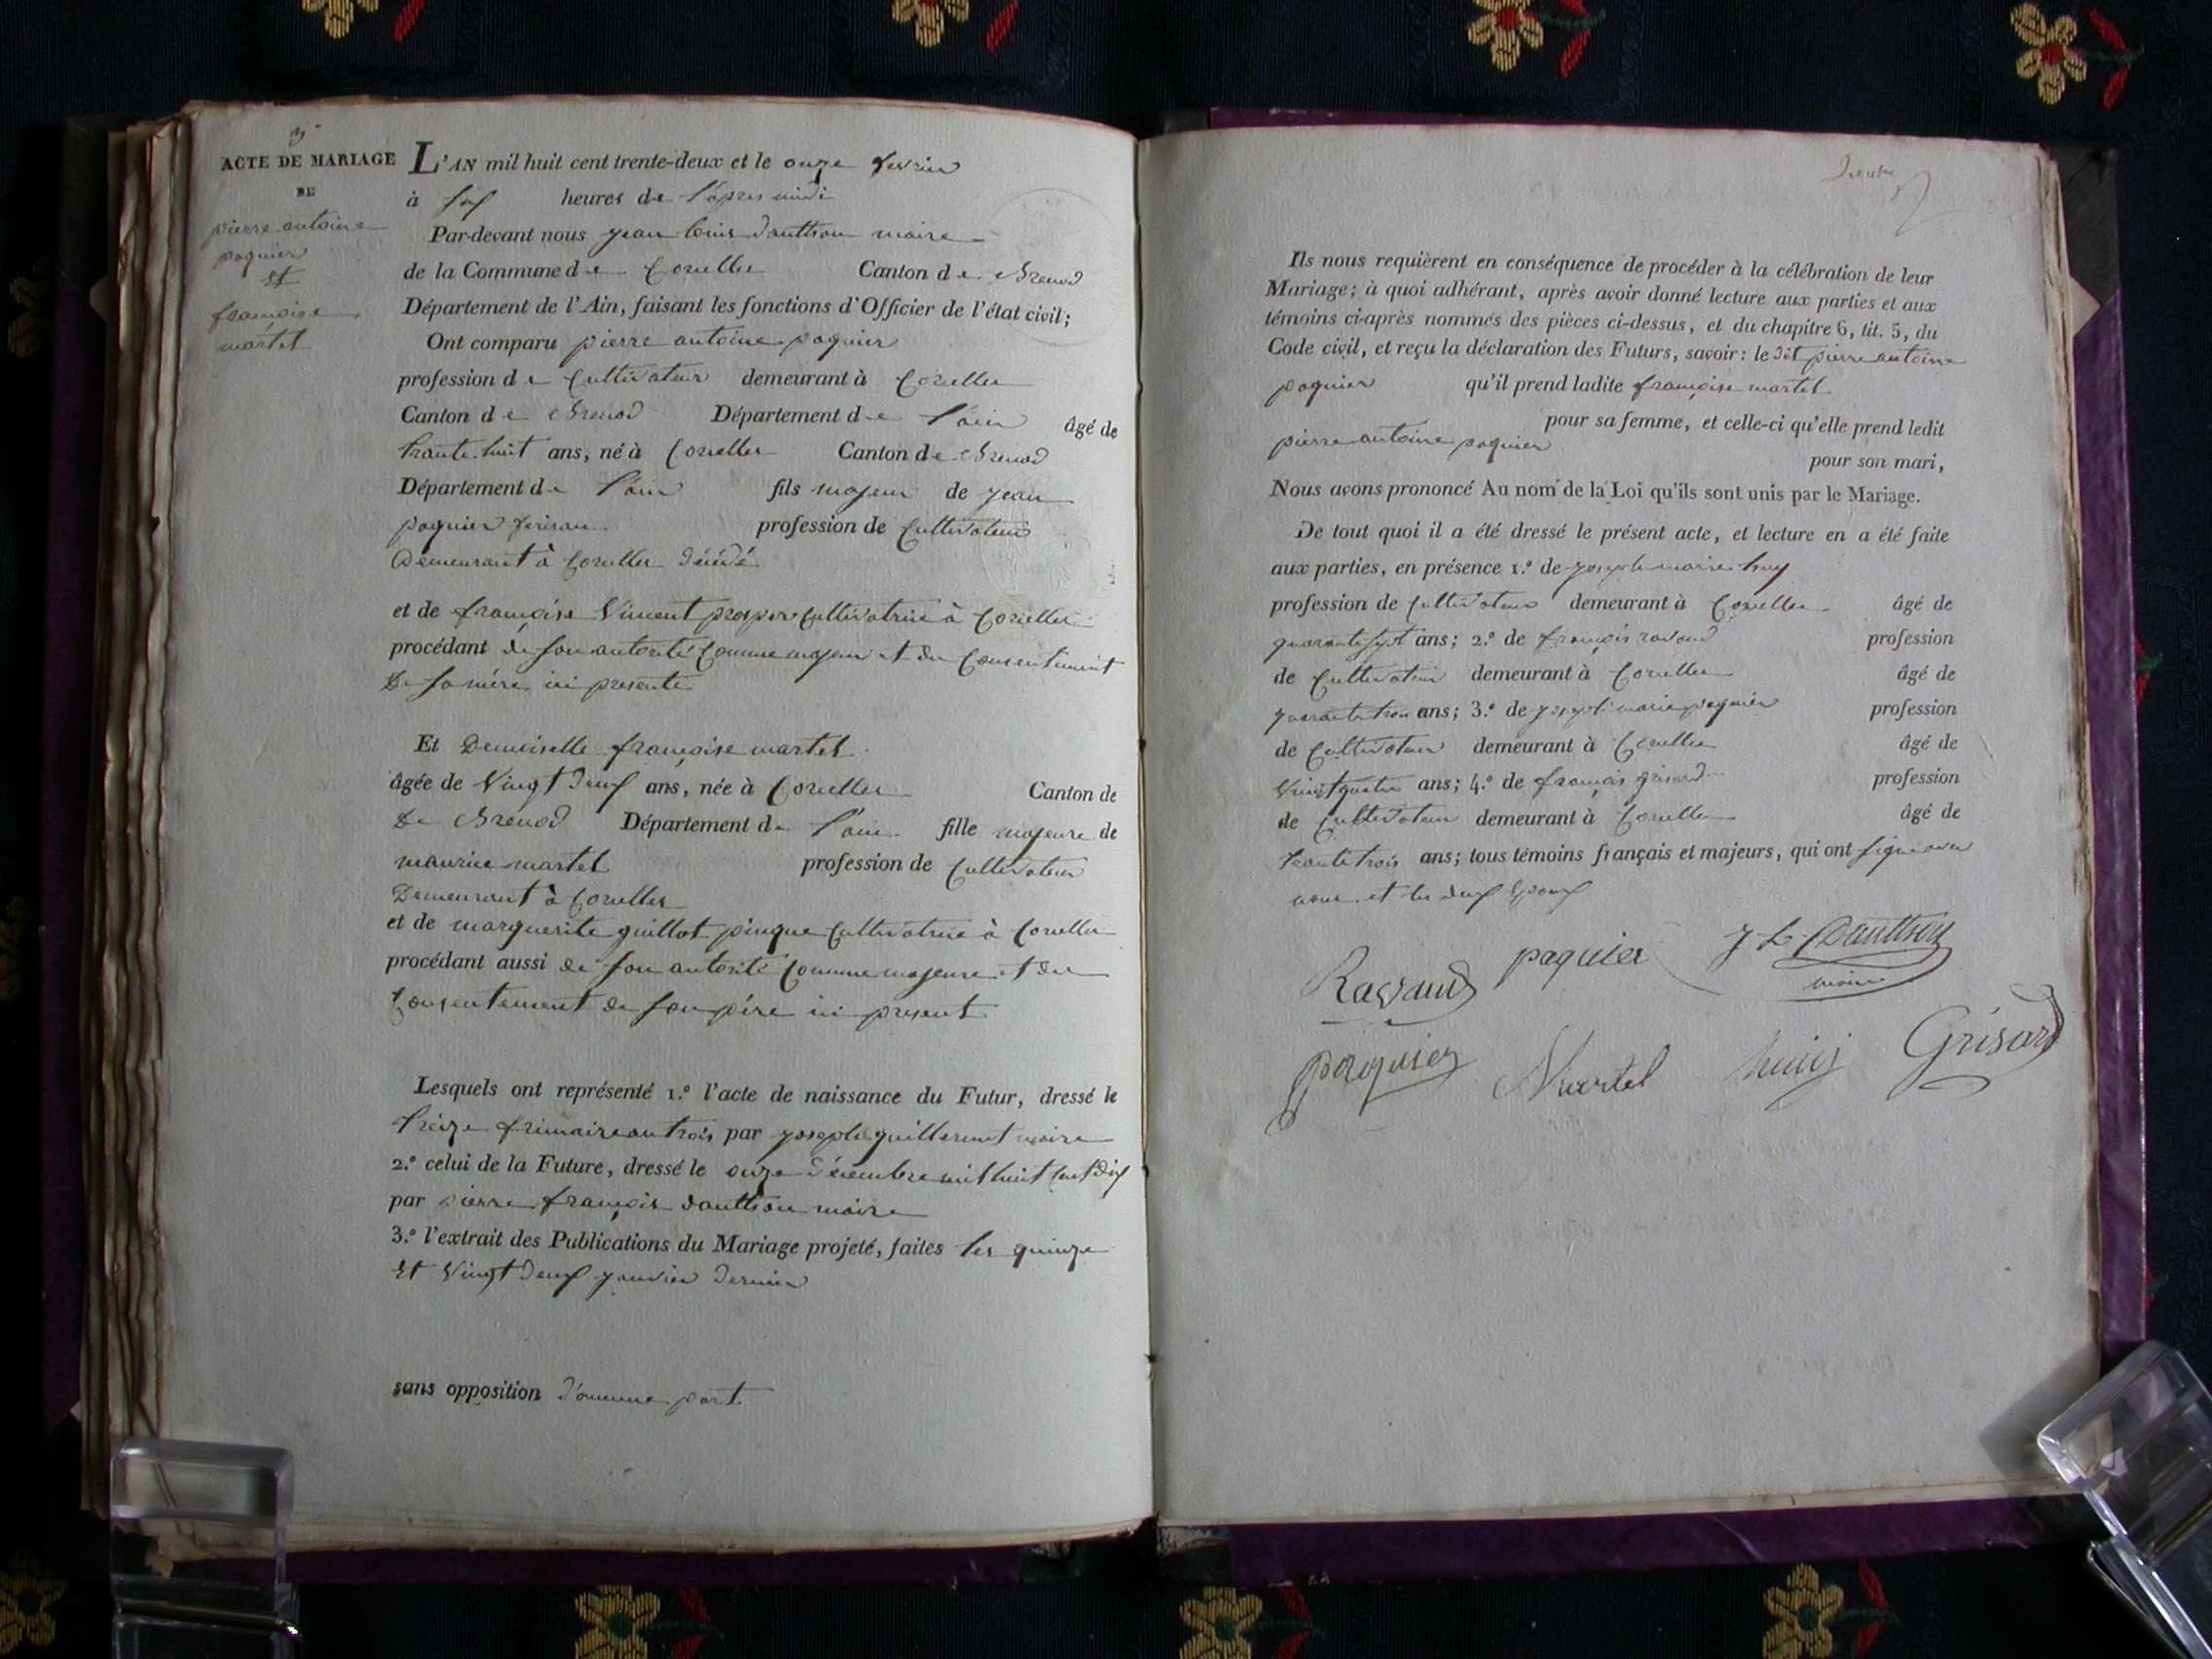 3e
ACTE DE MARIAGE
DE
pierre antoine
paquier
Et
françoise
martel
L'AN mil huit cent trente-deux et le onze fevrier
à six heures de l'apres midi
Par-devant nous jean louis dantthon maire
de la Commune de Corcelles Canton de Brenod
Département de l'Ain, faisant les fonctions d'Officier de l'état civil;
Ont comparu pierre antoine paquier
profession de Cultivateur demeurant à Corcelles
Canton de Brenod Département de l'ain âgé de
trante huit ans, né à Corcelles Canton de Brenod
Département de l'ain fils majeur de jean
paquier profession de Cultivateur
Demeurant à Corcelles décédé
et de françoise Vincent prospere Cultivatrice à Corcelles
procédant de son autorité Comme majeur et du Consentement
De sa mére ici presente
Et Demoiselle françoise martel
âgée de Vingt deux ans, née à Corcelles Canton de
De Brenod Département de l'ain fille majeure de
maurice martel profession de Cultivateur
Demeurant à Corcelles
et de marguerite guillot pingue Cultivatrice à Corcelles
procédant aussi de son autorité Comme majeure et du
Consentement de son pére ici present
Lesquels ont représenté 1.º l'acte de naissance du Futur, dressé le
treize frimaire an trois par joseph guillermet maire
2.º celui de la Future, dressé le onze décembre mil huit Cent dix
par pierre françois dantthon maire
3.º l'extrait des Publications du Mariage projeté, faites les quinze
Et Vingt deux janvier dernier
sans opposition d'aucune part
Ils nous requièrent en conséquence de procéder à la célébration de leur
Mariage; à quoi adhérant, après avoir donné lecture aux parties et aux
témoins ci-après nommés des pièces ci-dessus, et du chapitre 6, tit. 5, du
Code civil, et reçu la déclaration des Futurs, savoir: le dit pierre antoine
paquier qu'il prend ladite françoise martel
pour sa femme, et celle-ci qu'elle prend ledit
pierre antoine paquier
pour son mari,
Nous avons prononcé Au nom de la Loi qu'ils sont unis par le Mariage.
De tout quoi il a été dressé le présent acte, et lecture en a été faite
aux parties, en présence 1.º de joseph marie
profession de Cultivateur demeurant à Corcelles âgé de
quarante sept ans; 2.º de françois ravaud profession
de Cultivateur demeurant à Corcelles âgé de
quarante trois ans; 3.º de joseph marie paquier profession
de Cultivateur demeurant à Corcelles âgé de
Vingt quatre ans; 4.º de françois grisard profession
de Cultivateur demeurant à Corcelles âgé de
trante trois ans; tous témoins français et majeurs, qui ont signé avec
nous et les deux Epoux
Ravaud paquier J L Dantthon
maire
paquier Martel Grisard